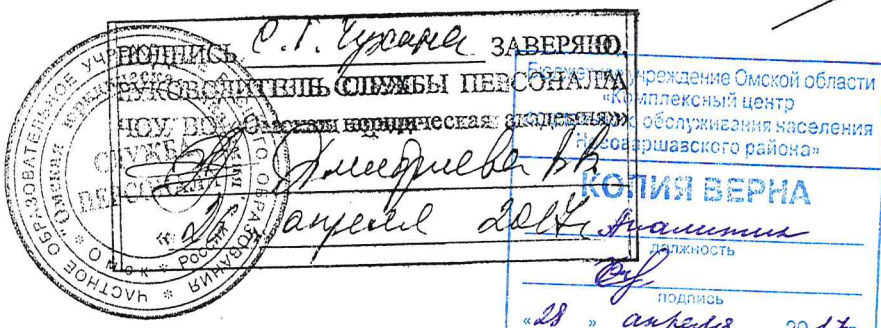 ПОДПИСЬ С.Г. Чухара ЗАВЕРЯЮ.
РУКОВОДИТЕЛЬ СЛУЖБЫ ПЕРСОНАЛА
ЧОУ ВО «Омская юридическая академия»
Дмитриева ВВ
апреля 2017г
ЧАСТНОЕ ОБРАЗОВАТЕЛЬНОЕ ОБРАЗОВАНИЯ
"Омская юридическая
СЛУЖБА
ПЕРСОНАЛА
Омск * Россия
учреждение Омской области
«Комплексный центр
обслуживания населения
Нововаршавского района»
КОПИЯ ВЕРНА
Аналитик
должность
подпись
«28 » апреля 2017г